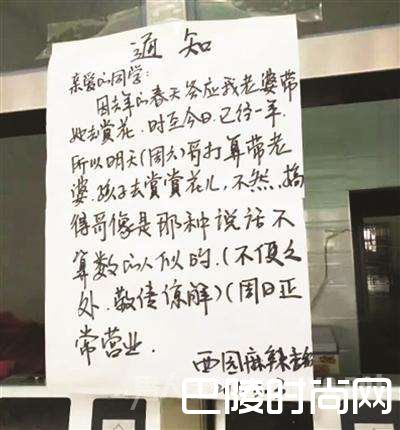 通知
亲爱的同学:
因去年的春天答应我老婆带
她去赏花.时至今日.已经一年.
所以明天(周六)哥打算带老
婆.孩子去赏赏花儿,不然,搞
得哥像是那种说话不
算数的人似的.(不便之
处.敬请谅解)(周日正
常营业.
西园麻辣香锅
巴陵时尚网